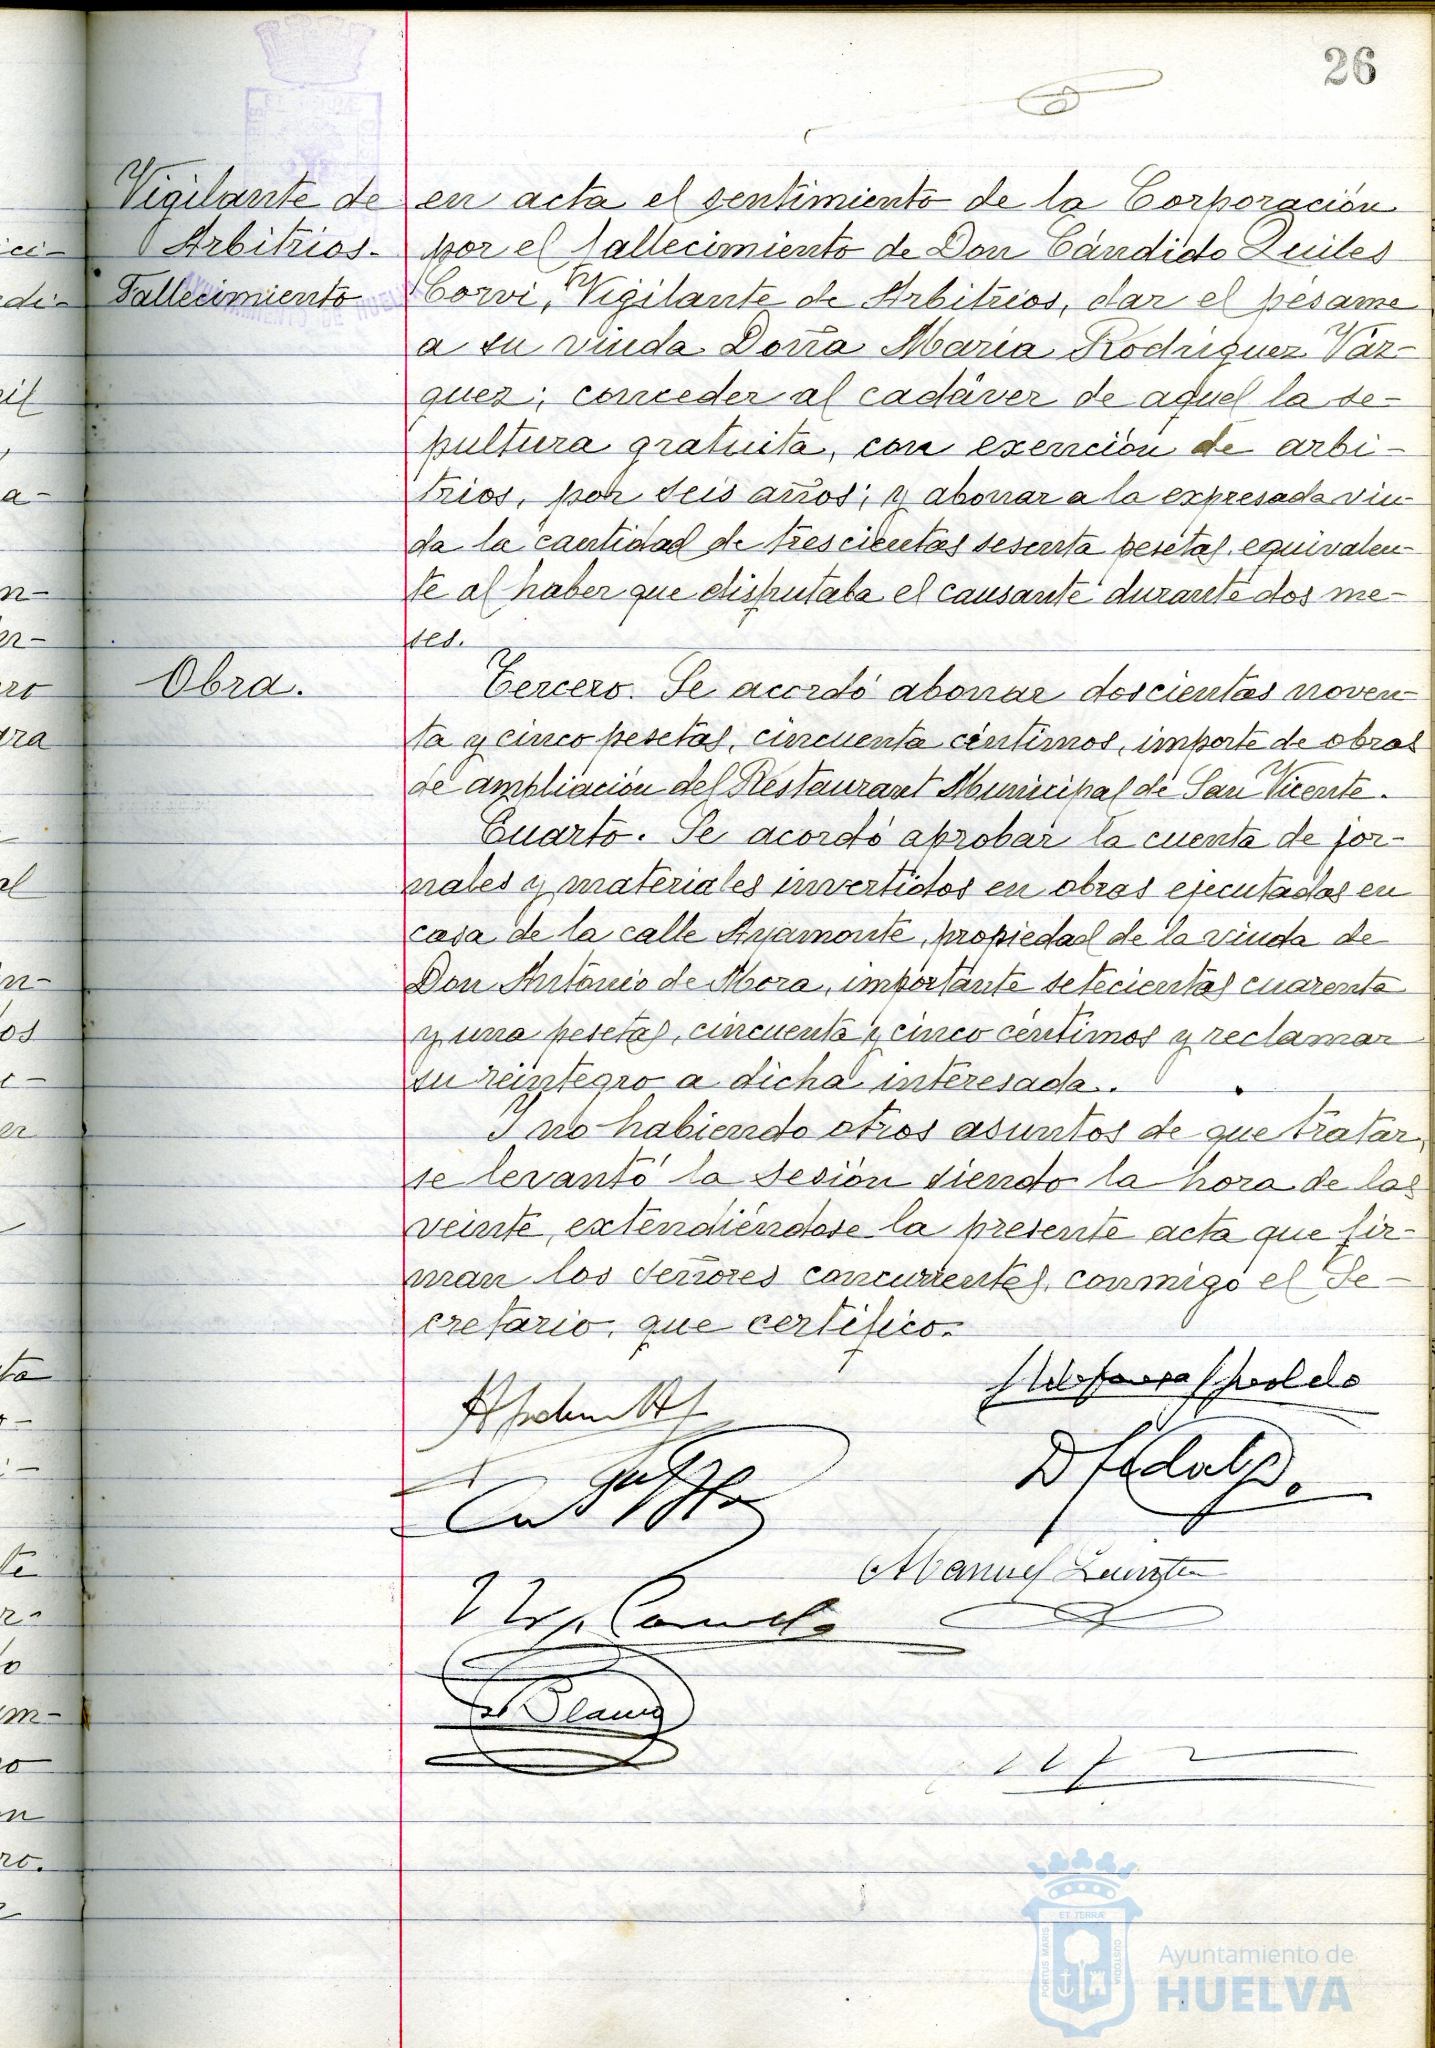 26
Vigilante de
Arbitrios.
Fallecimiento
en acta el sentimiento de la Corporación
por el fallecimiento de Don Cándido Quiles
Corvi, Vigilante de Arbitrios, dar el pésame
a su viuda Doña María Rodríguez Váz-
quez; conceder al cadáver de aquel la se-
pultura gratuita, con exención de arbi-
trios, por seis años; y abonar a la expresada viu-
da la cantidad de trescientas sesenta pesetas, equivalen-
te al haber que disfrutaba el causante durante dos me-
ses.
Obra.
Tercero. Se acordó abonar doscientas noven-
ta y cinco pesetas, cincuenta céntimos, importe de obras
de ampliación del Restaurant Municipal de San Vicente.
Cuarto. Se acordó aprobar la cuenta de jor-
nales y materiales invertidos en obras ejecutadas en
casa de la calle Ayamonte, propiedad de la viuda de
Don Antonio de Mora, importante setecientas cuarenta
y una pesetas, cincuenta y cinco céntimos y reclamar
su reintegro a dicha interesada.
Y no habiendo otros asuntos de que tratar,
se levantó la sesión siendo la hora de las
veinte, extendiéndose la presente acta que fir-
man los señores concurrentes, conmigo el Se-
cretario, que certifico.
D Hidalgo
Manuel
Blanco
PORTUS MARIS ET TERRÆ CUSTODIA
Ayuntamiento de
HUELVA